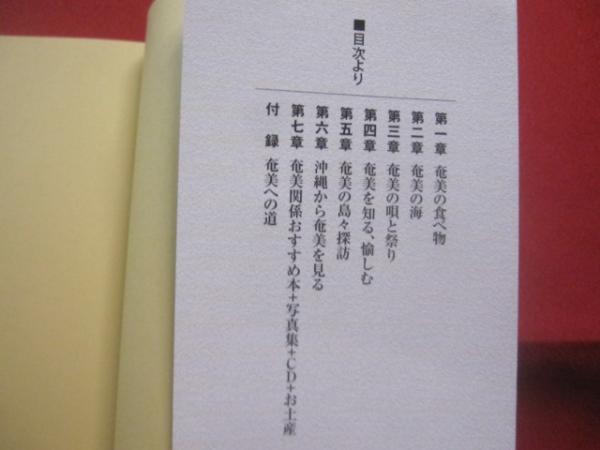 ■目次より
第一章 奄美の食べ物
第二章 奄美の海
第三章 奄美の唄と祭り
第四章 奄美を知る、愉しむ
第五章 奄美の島々探訪
第六章 沖縄から奄美を見る
第七章 奄美関係おすすめ本+写真集+CD+お土産
付録 奄美への道